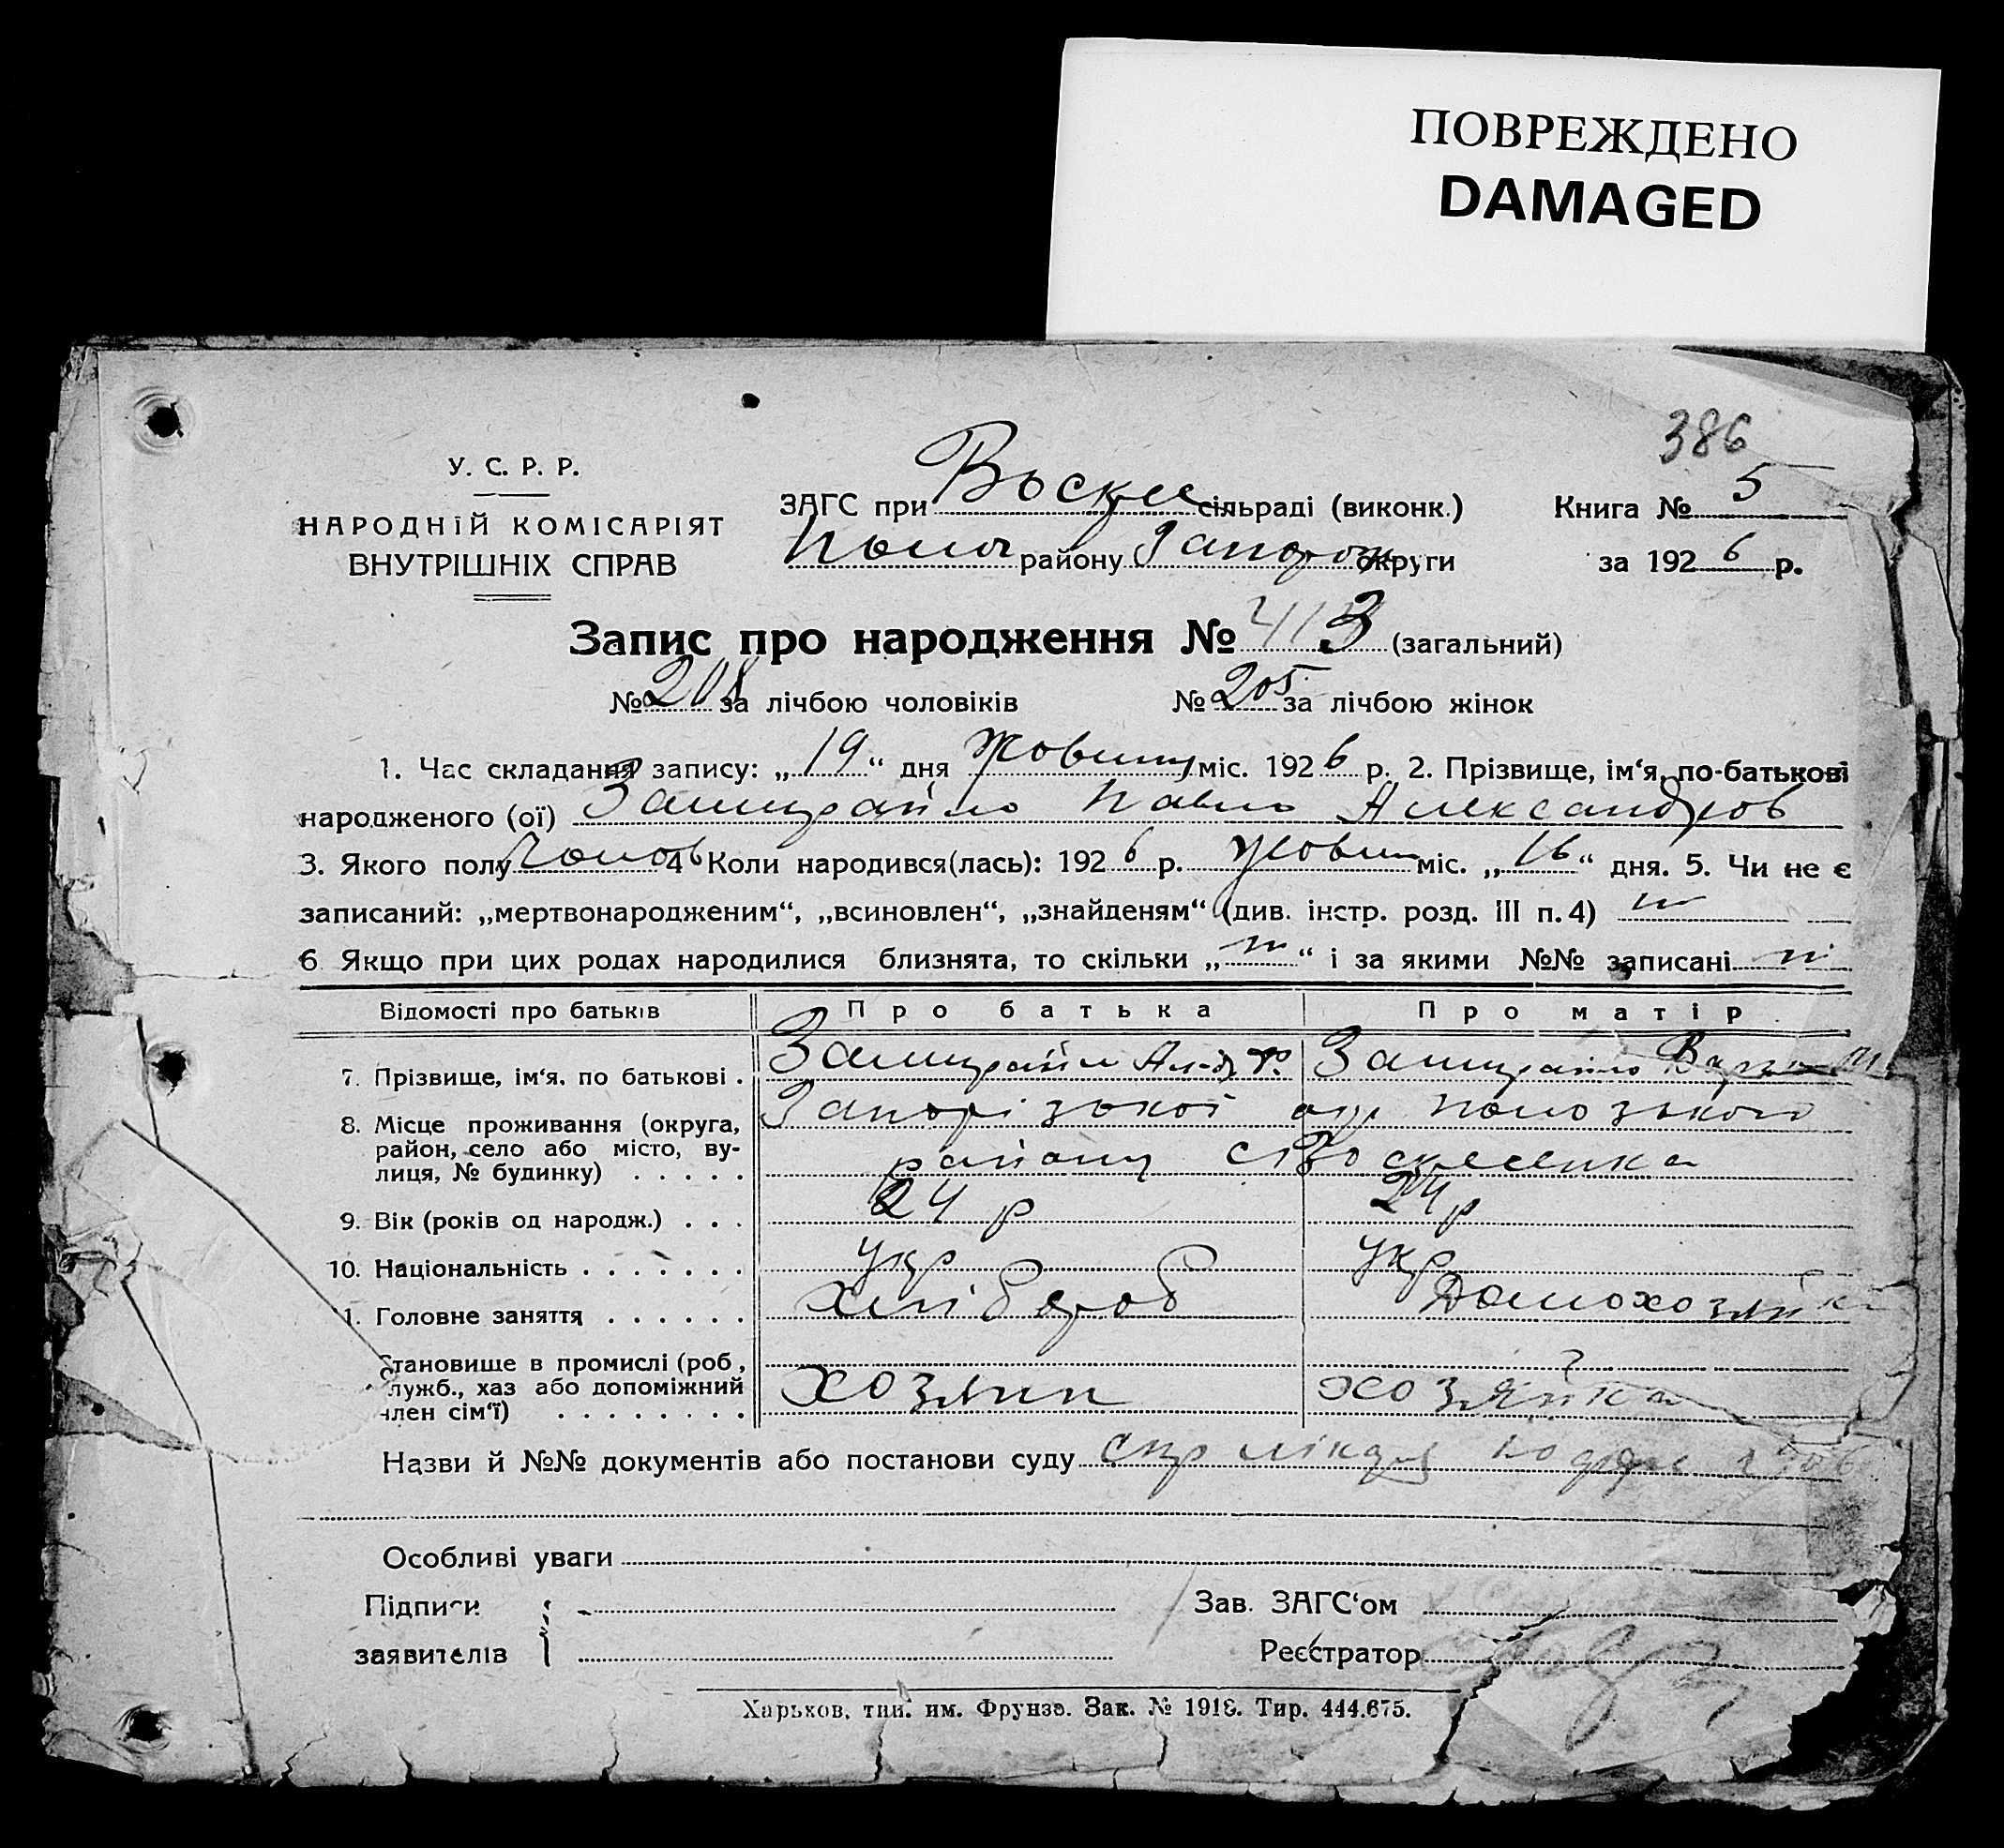 ПОВРЕЖДЕНО
DAMAGED
386
У. С. Р. Р.
НАРОДНІЙ КОМІСАРІЯТ
ВНУТРІШНІХ СПРАВ
ЗАГС при Воскре сільраді (виконк.)
Полог району Запорож округи
Книга № 5
за 1926 р.
Запис про народження № 413 (загальний)
№ 208 за лічбою чоловіків № 205 за лічбою жінок
1. Час складання запису: „19“ дня Жовтня міс. 1926 р. 2. Прізвище, ім‘я, по-батькові
народженого (ої) Замирайло Павло Александров
3. Якого полу Чолов 4 Коли народився(лась): 1926 р. Жовтн міс. „16“ дня. 5. Чи не є
записаний: „мертвонародженим“, „всиновлен“, „знайденям“ (див. інстр. розд. III п. 4) ні
6 Якщо при цих родах народилися близнята, то скільки „ні“ і за якими №№ записані ні
Відомості про батьків Про батька Про матір
7. Прізвище, ім‘я, по батькові . Замирайло Замирайло
8. Місце проживання (округа, Запорізької окр Пологського
район, село або місто, ву- району с Воскресенка
лиця, № будинку) . . . . .
9. Вік (років од народж.) . . . 24 р 24 р
10. Національність . . . . . . . Укр Укр
1. Головне заняття . . . . . . Хлібороб Домохозяйка
Становище в промислі (роб.,
служб., хаз або допоміжний хозяин хозяйка
член сім‘ї) . . . . . . . .
Назви й №№ документів або постанови суду
Особливі уваги
Підписи
заявителів
Зав. ЗАГС‘ом
Реєстратор
Харьков, тип. им. Фрунзе. Зак. № 1918. Тир. 444.675.